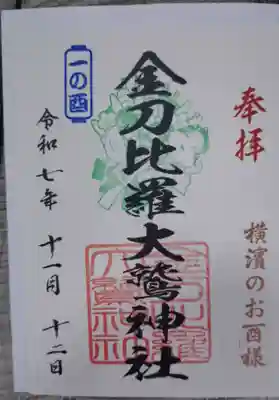 奉拝
横濱のお酉様
金刀比羅大鷲神社
一の酉
令和七年 十一月 十二日